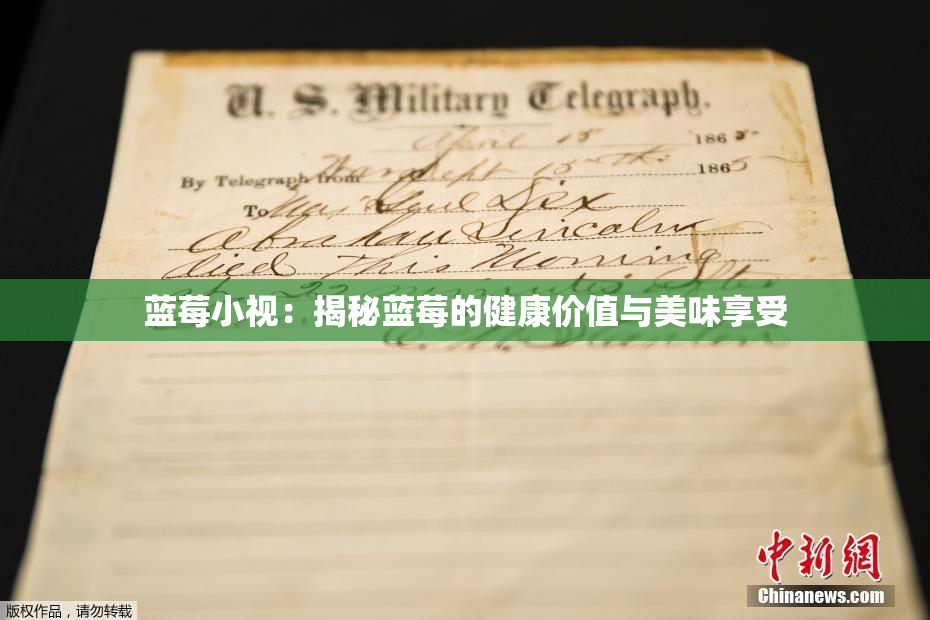 U. S. Military Telegraph.
April 15 1865.
By Telegraph from War Dept 15th 1865
To Maj Genl Dix
Abraham Lincoln
died This Morning
at 22 minutes after
蓝莓小视：揭秘蓝莓的健康价值与美味享受
E. M. Stanton
中新網
Chinanews.com
版权作品，请勿转载